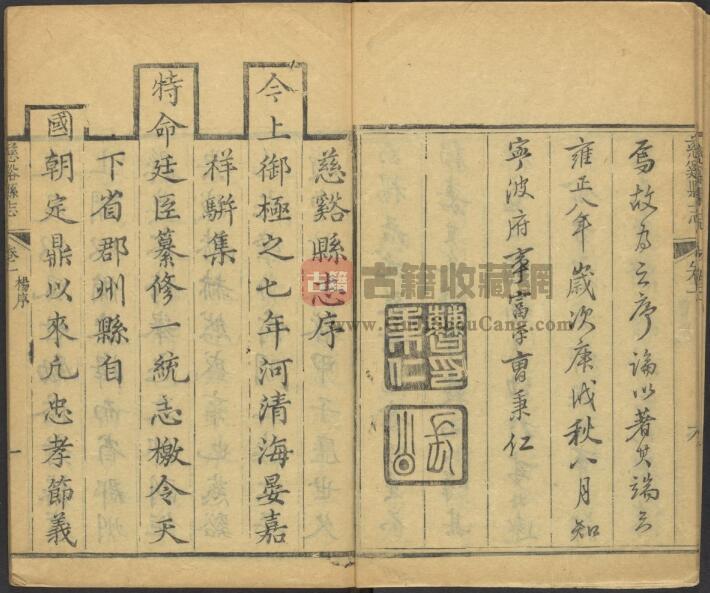 焉故為之序論以著其端云
雍正八年歲次庚戌秋八月知
寧波府事富平曹秉仁
曹秉仁印
慈谿縣志序
今上御極之七年河清海晏嘉
祥駢集
特命廷臣纂修一統志檄令天
下省郡州縣自
國朝定鼎以來凡忠孝節義
慈谿縣志
卷一
楊序
一
古籍收藏網